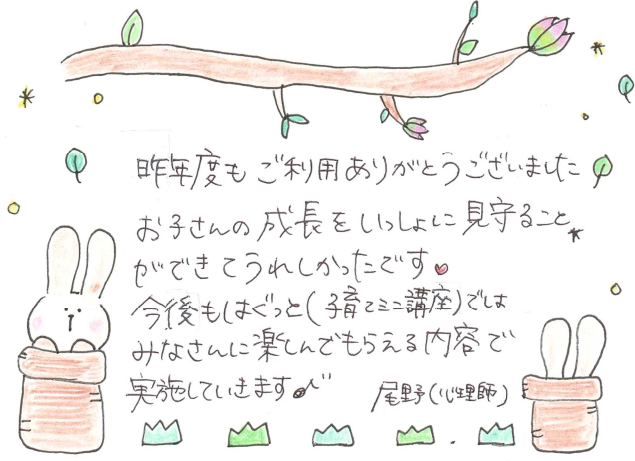 昨年度もご利用ありがとうございました
お子さんの成長をいっしょに見守ること
ができてうれしかったです
今後もはぐっと(子育てミニ講座)では
みなさんに楽しんでもらえる内容で
実施していきます♪
尾野(心理師)